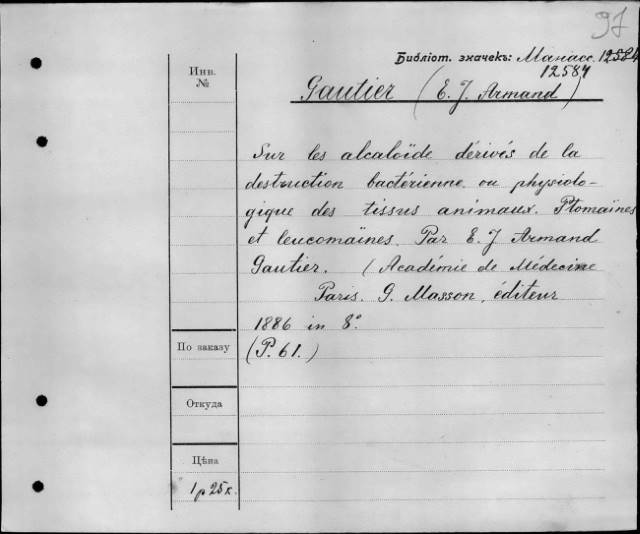 97
Библіот. значекъ: Манасс. 12584
12584
Gautier (E. J. Armand)
Инв.
№
Sur les alcaloïde dérivés de la
destruction bactérienne ou physiolo-
gique des tissus animaux. Ptomaïnes
et leucomaïnes. Par E. J Armand
Gautier. (Académie de Médecine
Paris. G. Masson, éditeur
1886 in 8°.
(P. 61.)
По заказу
Откуда
Цѣна
1 р 25 к.